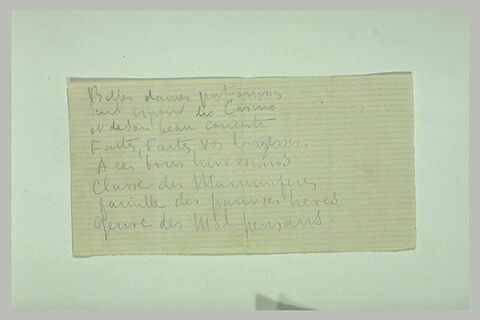 Belles dames patronnesses
Seul espoir du Casino
et de son beau concerto
Faites, Faites, vos largesses.
A ces bons hivernants
Classe des Mammifères
famille des pauvres hères
Genre des Mal pensans.